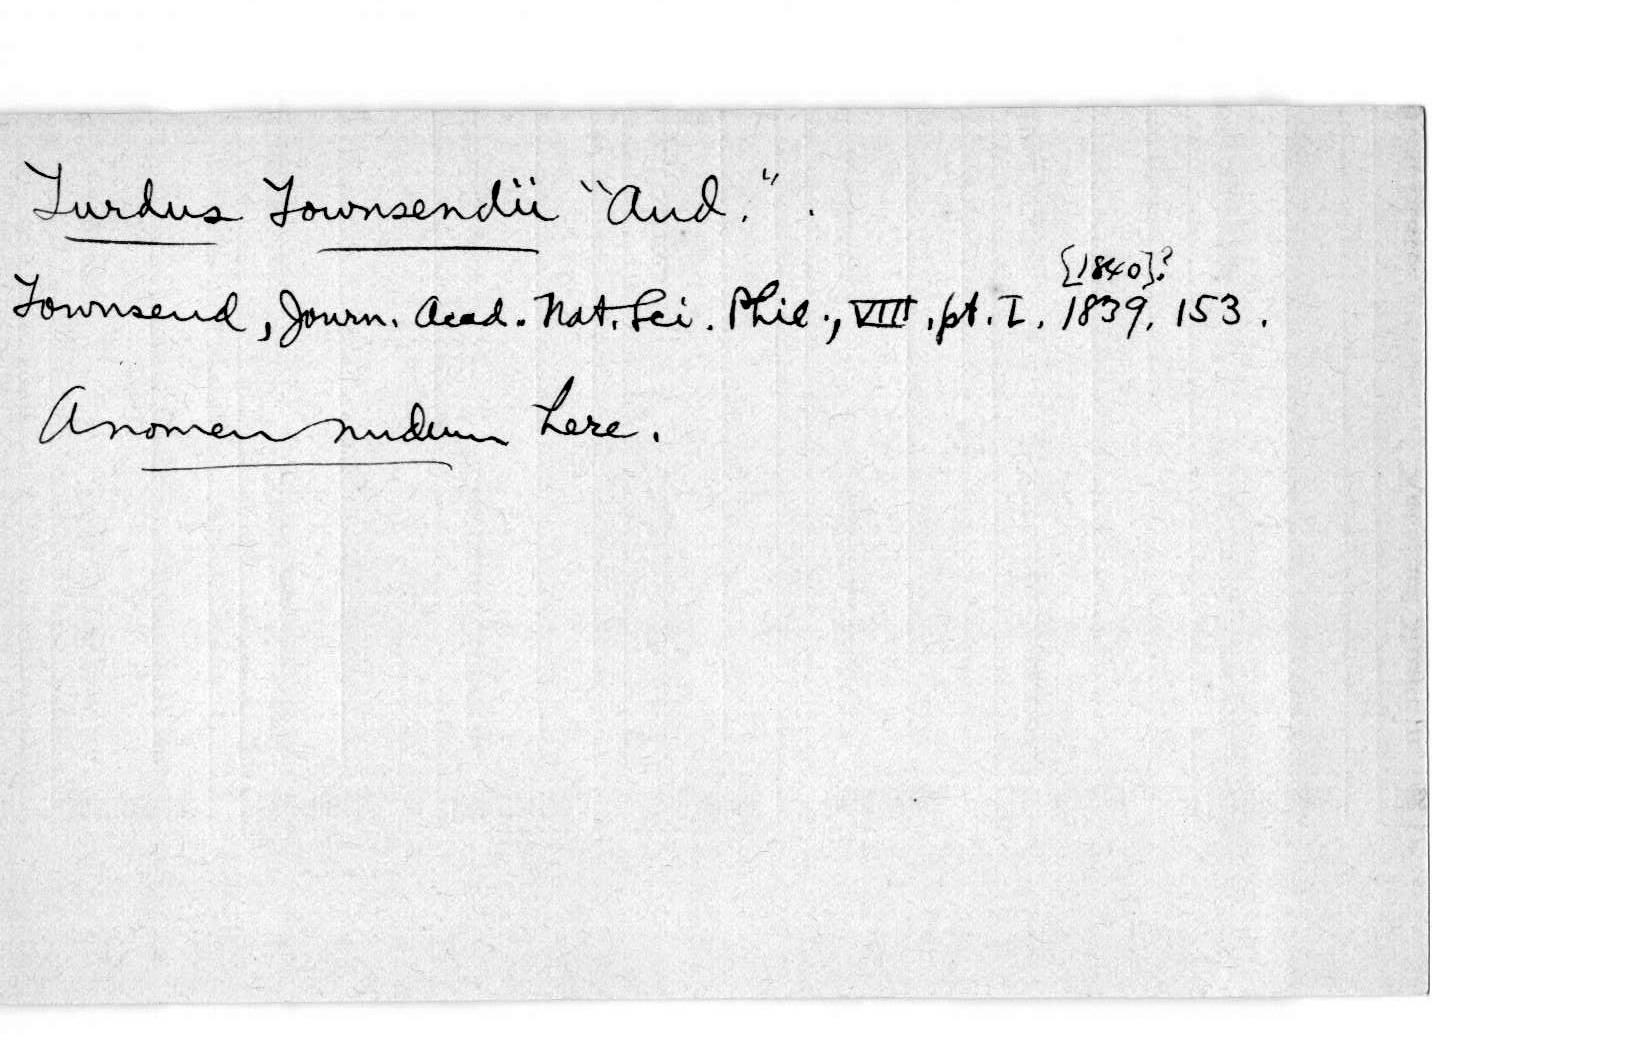 Turdus Townsendii "Aud." .
[1840]?
Townsend, Journ. Acad. Nat. Sci. Phil., VIII, pt. I. 1839, 153.
A nomen nudum here.